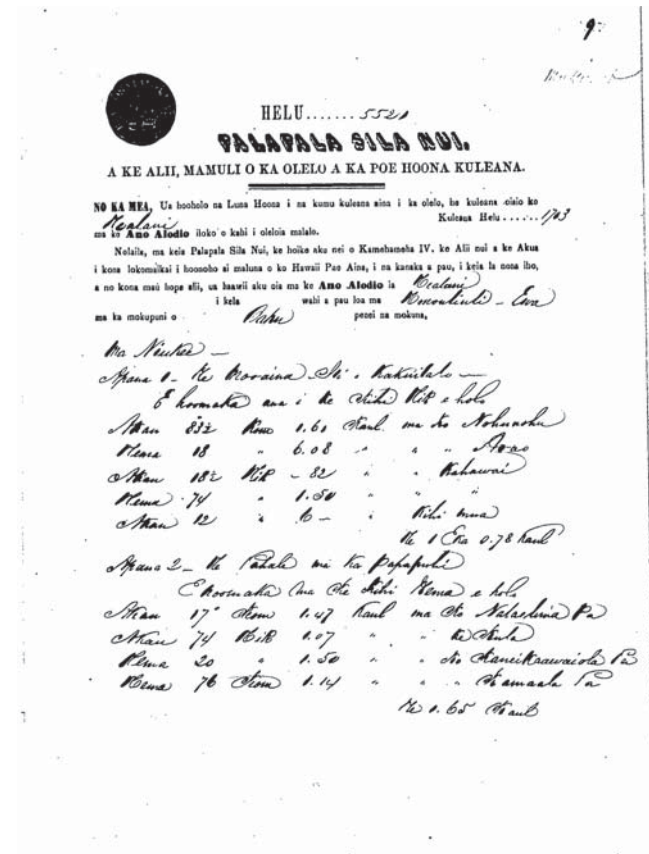 9
HELU.......5521
PALAPALA SILA NUI.
A KE ALII, MAMULI O KA OLELO A KA POE HOONA KULEANA.
NO KA MEA, Ua hooholo na Luna Hoona i na kumu kuleana aina i ka olelo, he kuleana oiaio ko
Kealani Kuleana Helu......1703
ma ke Ano Alodio iloko o kahi i oleloia malalo.
Nolaila, ma keia Palapala Sila Nui, ke hoike aku nei o Kamehameha IV. ke Alii nui a ke Akua
i kona lokomaikai i hoonoho ai maluna o ko Hawaii Pae Aina, i na kanaka a pau, i keia la nona iho,
a no kona mau hope alii, ua haawi aku oia ma ke Ano Alodio ia Kealani
i kela wahi a pau loa ma Honouliuli - Ewa
ma ka mokupuni o Oahu penei na mokuna,
Ma Niukee
Apana 1 - He Mooaina
E hoomaka ana i ke Kihi Hik e holo
Akau 83½ Kom 1.60 Kaul. ma ko Nohunohu
Hema 18 " 6.08 " " "
Akau 18½ Hik - 82 " " Kahawai
Hema 74 " 1.50 " " "
Akau 12 " 6 - " Kihi mua
He 1 Eka 0.78 Kaul
Apana 2 - He Pahale ma ka Papapuhi
E hoomaka ma ke Kihi Hema e holo
Akau 17° Kom 1.47 Kaul ma ko Pa
Akau 74 Hik 1.07 " " ke Kula
Hema 20 " 1.50 " " ko Pa
Hema 76 Kom 1.14 " " " Kamaala Pa
He 1.65 Kaul